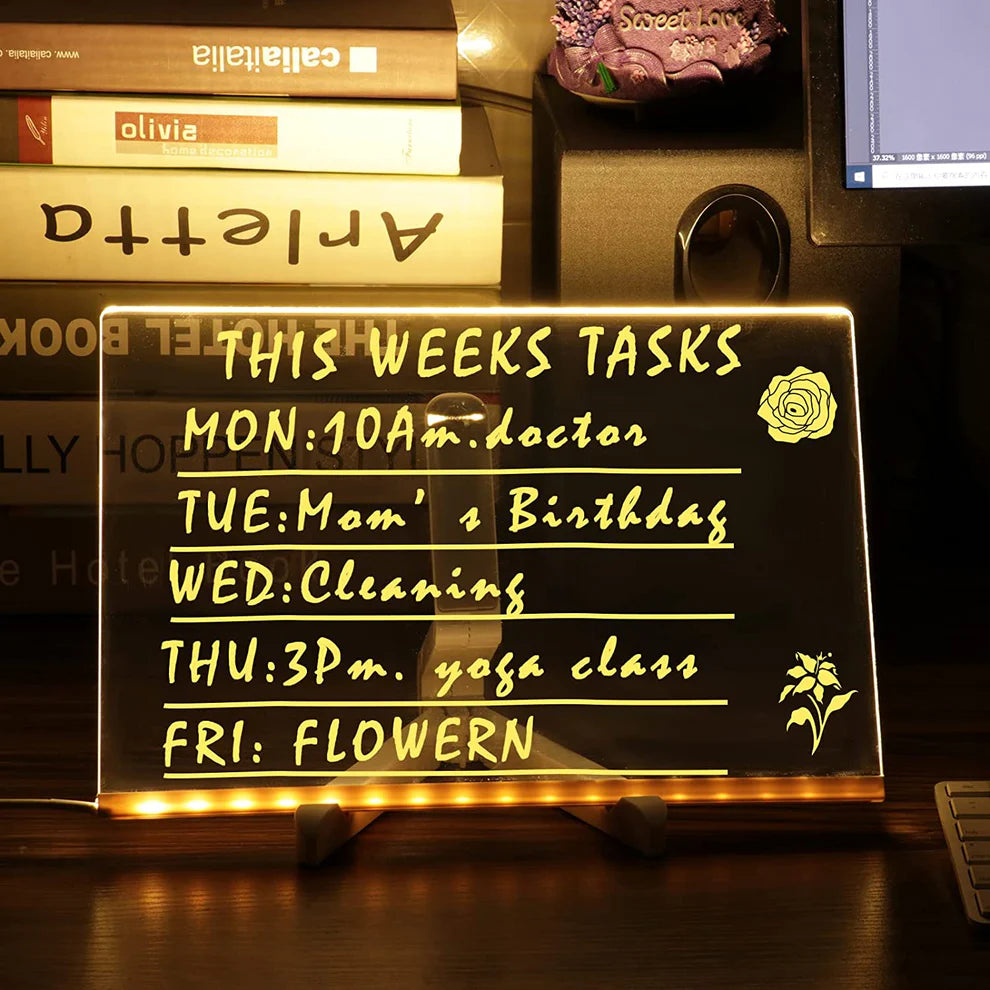 www.caliaitalia
caliaitalia
Sweet Love
olivia
home decoration
Arletta
37.32% 1600 像素 x 1600 像素 (96 ppi)
THE HOTEL BOOK
LLY HOPPEN STY
e Hotel Book
THIS WEEKS TASKS
MON:10Am.doctor
TUE:Mom's Birthday
WED:Cleaning
THU:3Pm. yoga class
FRI: FLOWERN